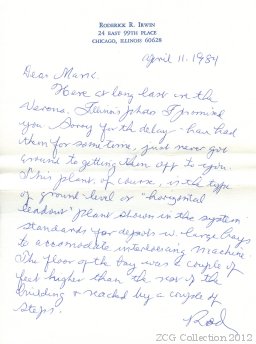 RODERICK R. IRWIN
24 EAST 99TH PLACE
CHICAGO, ILLINOIS 60628
April 11, 1984
Dear Mark:
Here at long last is the
Verona, Illinois photos I promised
you. Sorry for the delay - have had
them for some time, just never got
around to getting them off to you.
This plant, of course, is the type
of ground level or "horizontal
leadout" plant shown in the system
standards for depots w. large bays
to accomodate interlocking machine.
The floor of the bay was a couple of
feet higher than the rest of the
building & reached by a couple of
steps.
Rod
ZCG Collection 2012